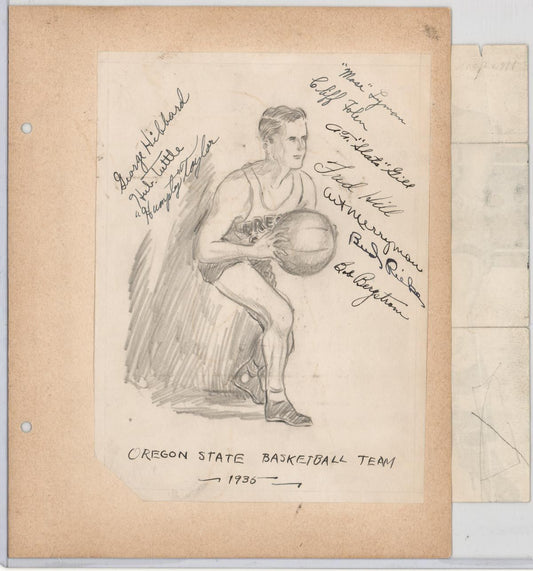 George Hibbard
"Hub" Tuttle
"Humpty" Taylor
"Mose" Lyman
Cliff Folen
A.T. "Slats" Gill
Fred Hill
Art Merryman
Bob Bergstrom
ORE
OREGON STATE BASKETBALL TEAM
1935